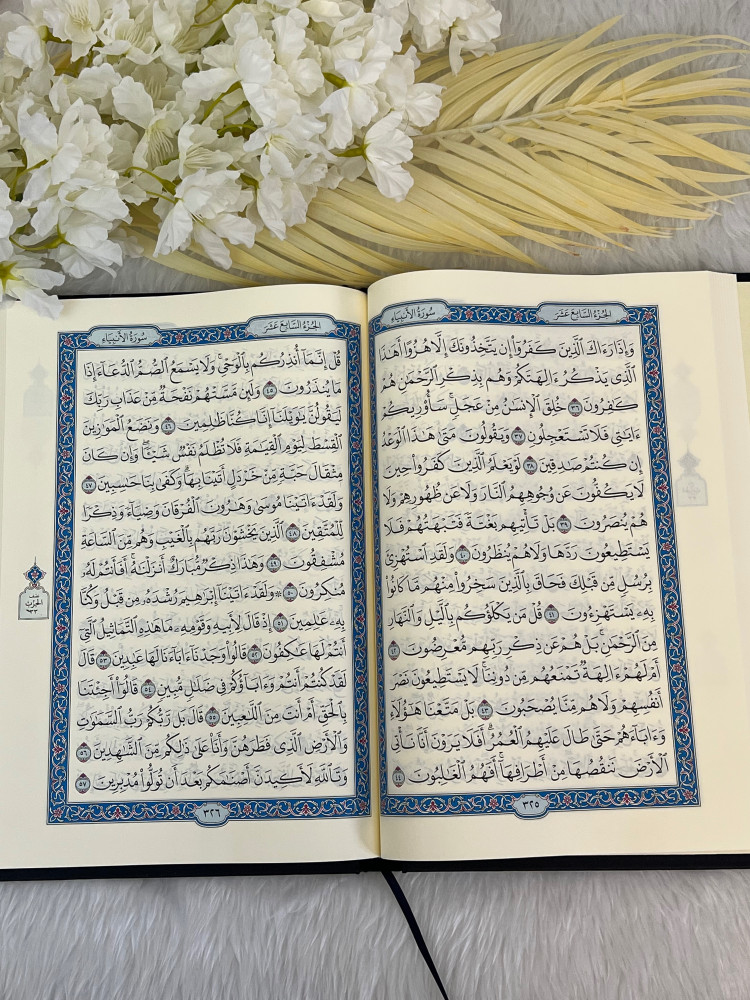 سُورَةُ الأَنبِيَاءِ
الجُزْءُ السَّابِعَ عَشَرَ
وَإِذَا رَءَاكَ الَّذِينَ كَفَرُوٓا۟ إِن يَتَّخِذُونَكَ إِلَّا هُزُوًا أَهَٰذَا
الَّذِى يَذْكُرُ ءَالِهَتَكُمْ وَهُم بِذِكْرِ الرَّحْمَٰنِ هُمْ
كَٰفِرُونَ ٣٦ خُلِقَ الْإِنسَٰنُ مِنْ عَجَلٍ ۚ سَأُو۟رِيكُمْ
ءَايَٰتِى فَلَا تَسْتَعْجِلُونِ ٣٧ وَيَقُولُونَ مَتَىٰ هَٰذَا الْوَعْدُ
إِن كُنتُمْ صَٰدِقِينَ ٣٨ لَوْ يَعْلَمُ الَّذِينَ كَفَرُوا۟ حِينَ
لَا يَكُفُّونَ عَن وُجُوهِهِمُ النَّارَ وَلَا عَن ظُهُورِهِمْ وَلَا
هُمْ يُنصَرُونَ ٣٩ بَلْ تَأْتِيهِم بَغْتَةً فَتَبْهَتُهُمْ فَلَا
يَسْتَطِيعُونَ رَدَّهَا وَلَا هُمْ يُنظَرُونَ ٤٠ وَلَقَدِ اسْتُهْزِئَ
بِرُسُلٍ مِّن قَبْلِكَ فَحَاقَ بِالَّذِينَ سَخِرُوا۟ مِنْهُم مَّا كَانُوا۟
بِهِۦ يَسْتَهْزِءُونَ ٤١ قُلْ مَن يَكْلَؤُكُم بِالَّيْلِ وَالنَّهَارِ
مِنَ الرَّحْمَٰنِ ۗ بَلْ هُمْ عَن ذِكْرِ رَبِّهِم مُّعْرِضُونَ ٤٢
أَمْ لَهُمْ ءَالِهَةٌ تَمْنَعُهُم مِّن دُونِنَا ۚ لَا يَسْتَطِيعُونَ نَصْرَ
أَنفُسِهِمْ وَلَا هُم مِّنَّا يُصْحَبُونَ ٤٣ بَلْ مَتَّعْنَا هَٰٓؤُلَآءِ
وَءَابَآءَهُمْ حَتَّىٰ طَالَ عَلَيْهِمُ الْعُمُرُ ۗ أَفَلَا يَرَوْنَ أَنَّا نَأْتِى
الْأَرْضَ نَنقُصُهَا مِنْ أَطْرَافِهَآ ۚ أَفَهُمُ الْغَٰلِبُونَ ٤٤
٣٢٥
سُورَةُ الأَنبِيَاءِ
الجُزْءُ السَّابِعَ عَشَرَ
قُلْ إِنَّمَآ أُنذِرُكُم بِالْوَحْىِ ۚ وَلَا يَسْمَعُ الصُّمُّ الدُّعَآءَ إِذَا
مَا يُنذَرُونَ ٤٥ وَلَئِن مَّسَّتْهُمْ نَفْحَةٌ مِّنْ عَذَابِ رَبِّكَ
لَيَقُولُنَّ يَٰوَيْلَنَآ إِنَّا كُنَّا ظَٰلِمِينَ ٤٦ وَنَضَعُ الْمَوَٰزِينَ
الْقِسْطَ لِيَوْمِ الْقِيَٰمَةِ فَلَا تُظْلَمُ نَفْسٌ شَيْـًٔا ۖ وَإِن كَانَ
مِثْقَالَ حَبَّةٍ مِّنْ خَرْدَلٍ أَتَيْنَا بِهَا ۗ وَكَفَىٰ بِنَا حَٰسِبِينَ ٤٧
وَلَقَدْ ءَاتَيْنَا مُوسَىٰ وَهَٰرُونَ الْفُرْقَانَ وَضِيَآءً وَذِكْرًا
لِّلْمُتَّقِينَ ٤٨ الَّذِينَ يَخْشَوْنَ رَبَّهُم بِالْغَيْبِ وَهُم مِّنَ السَّاعَةِ
مُشْفِقُونَ ٤٩ وَهَٰذَا ذِكْرٌ مُّبَارَكٌ أَنزَلْنَٰهُ ۚ أَفَأَنتُمْ لَهُۥ
مُنكِرُونَ ٥٠ ۞ وَلَقَدْ ءَاتَيْنَآ إِبْرَٰهِيمَ رُشْدَهُۥ مِن قَبْلُ وَكُنَّا
بِهِۦ عَٰلِمِينَ ٥١ إِذْ قَالَ لِأَبِيهِ وَقَوْمِهِۦ مَا هَٰذِهِ التَّمَاثِيلُ الَّتِىٓ
أَنتُمْ لَهَا عَٰكِفُونَ ٥٢ قَالُوا۟ وَجَدْنَآ ءَابَآءَنَا لَهَا عَٰبِدِينَ ٥٣ قَالَ
لَقَدْ كُنتُمْ أَنتُمْ وَءَابَآؤُكُمْ فِى ضَلَٰلٍ مُّبِينٍ ٥٤ قَالُوٓا۟ أَجِئْتَنَا
بِالْحَقِّ أَمْ أَنتَ مِنَ اللَّٰعِبِينَ ٥٥ قَالَ بَل رَّبُّكُمْ رَبُّ السَّمَٰوَٰتِ
وَالْأَرْضِ الَّذِى فَطَرَهُنَّ وَأَنَا۠ عَلَىٰ ذَٰلِكُم مِّنَ الشَّٰهِدِينَ ٥٦
وَتَاللَّهِ لَأَكِيدَنَّ أَصْنَٰمَكُم بَعْدَ أَن تُوَلُّوا۟ مُدْبِرِينَ ٥٧
٣٢٦